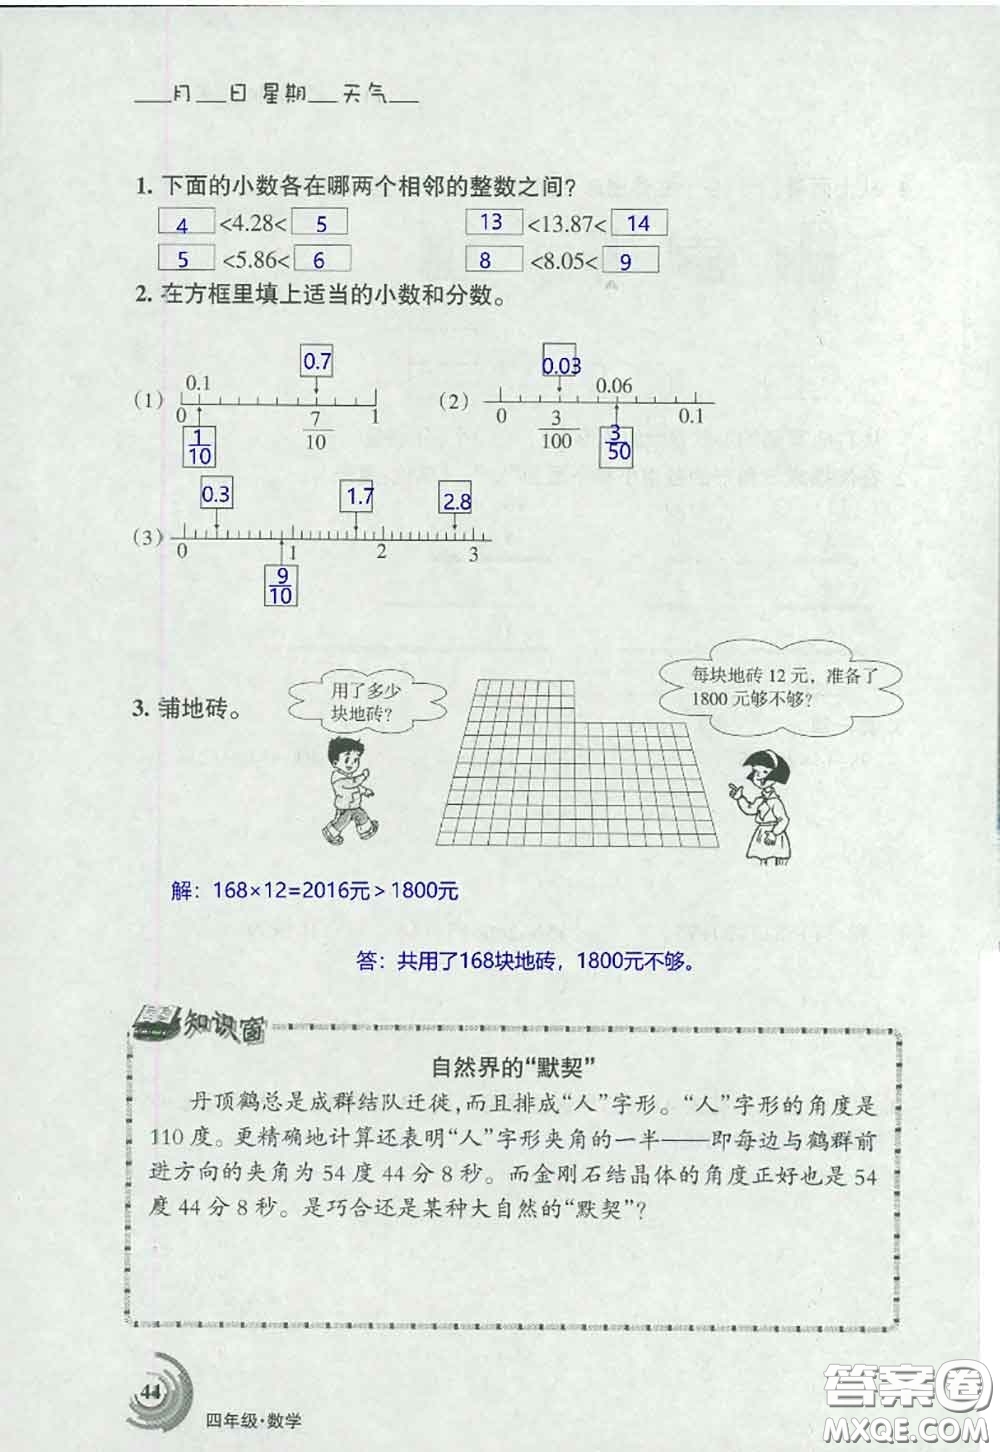 ___月___日 星期___天气___
1. 下面的小数各在哪两个相邻的整数之间?
4 <4.28< 5 13 <13.87< 14
5 <5.86< 6 8 <8.05< 9
2. 在方框里填上适当的小数和分数。
0.7 0.03
0.1 0.06
(1) 0 7/10 1 (2) 0 3/100 0.1
1/10 3/50
0.3 1.7 2.8
(3) 0 1 2 3
9/10
3. 铺地砖。
用了多少
块地砖?
每块地砖 12 元，准备了
1800 元够不够?
解：168×12=2016元＞1800元
答：共用了168块地砖，1800元不够。
知识窗
自然界的“默契”
丹顶鹤总是成群结队迁徙,而且排成“人”字形。“人”字形的角度是
110 度。更精确地计算还表明“人”字形夹角的一半——即每边与鹤群前
进方向的夹角为 54 度 44 分 8 秒。而金刚石结晶体的角度正好也是 54
度 44 分 8 秒。是巧合还是某种大自然的“默契”?
44
四年级·数学
答案圈
MXQE.COM